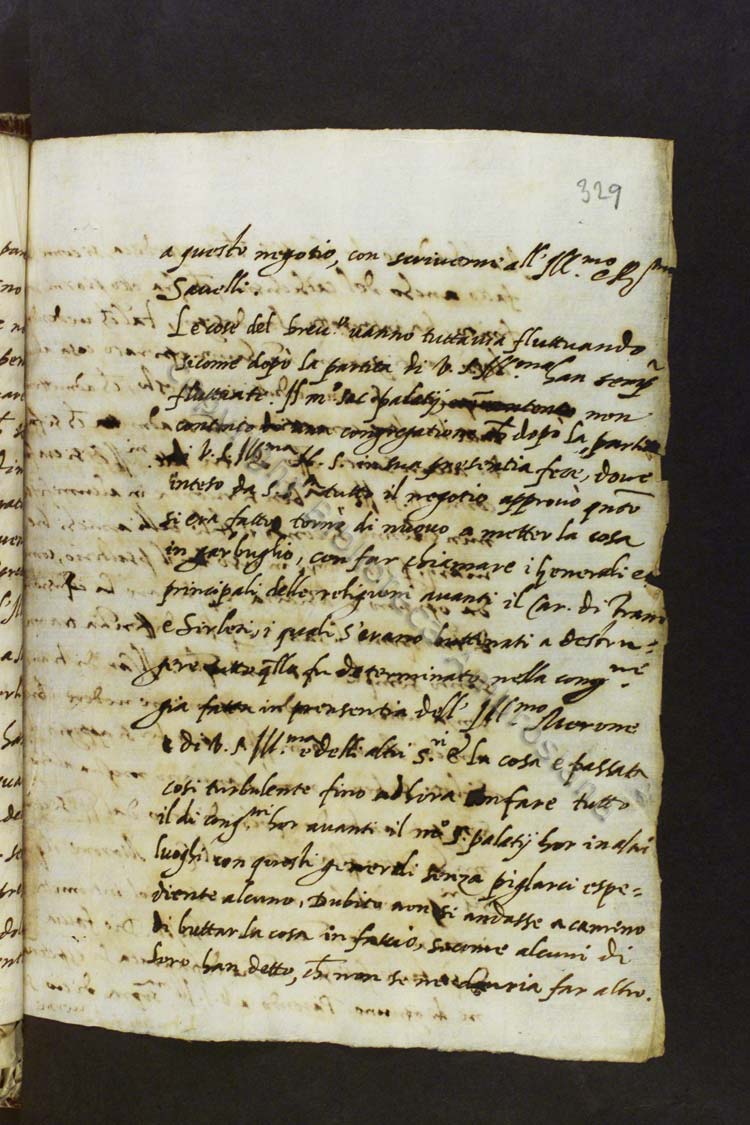 329
a questo negotio, con scriverne all' Ill.mo e R.mo
Savelli.
Le cose del brev.º vanno tuttavia fluttuando
sicome dopò la partita di V. S. Ill.ma han semp
fluttuato. Il m.º sac. palatij non
contento congregatione dopò la partita
di V. S. Ill.ma N. S. in sua presentia fece, dove
inteso da S. S.tà tutto il negotio approvò qnto
si era fatto, tornò di nuovo a metter la cosa
in garbuglio, con far chiamare i Generali e
principali delle religioni avanti il Car. di Trani
e Sirleti, i quali s'erano buttati a destru-
gere qlla fu determinato nella cong.ne
gia fatta in presentia dell' Ill.mo Morone
e di V. S. Ill.ma e delli altri S.ri & la cosa e passata
cosi turbulente fino ad hora con fare tutto
il di cong.ni hor avanti il m.º S. palatij hor in altri
luoghi con questi generali senza pigliarci espe-
diente alcuno, Dubito non si andasse a cameno
di buttar la cosa in fascio, sicome alcuni di
loro han detto, ch non se ne devria far altro.